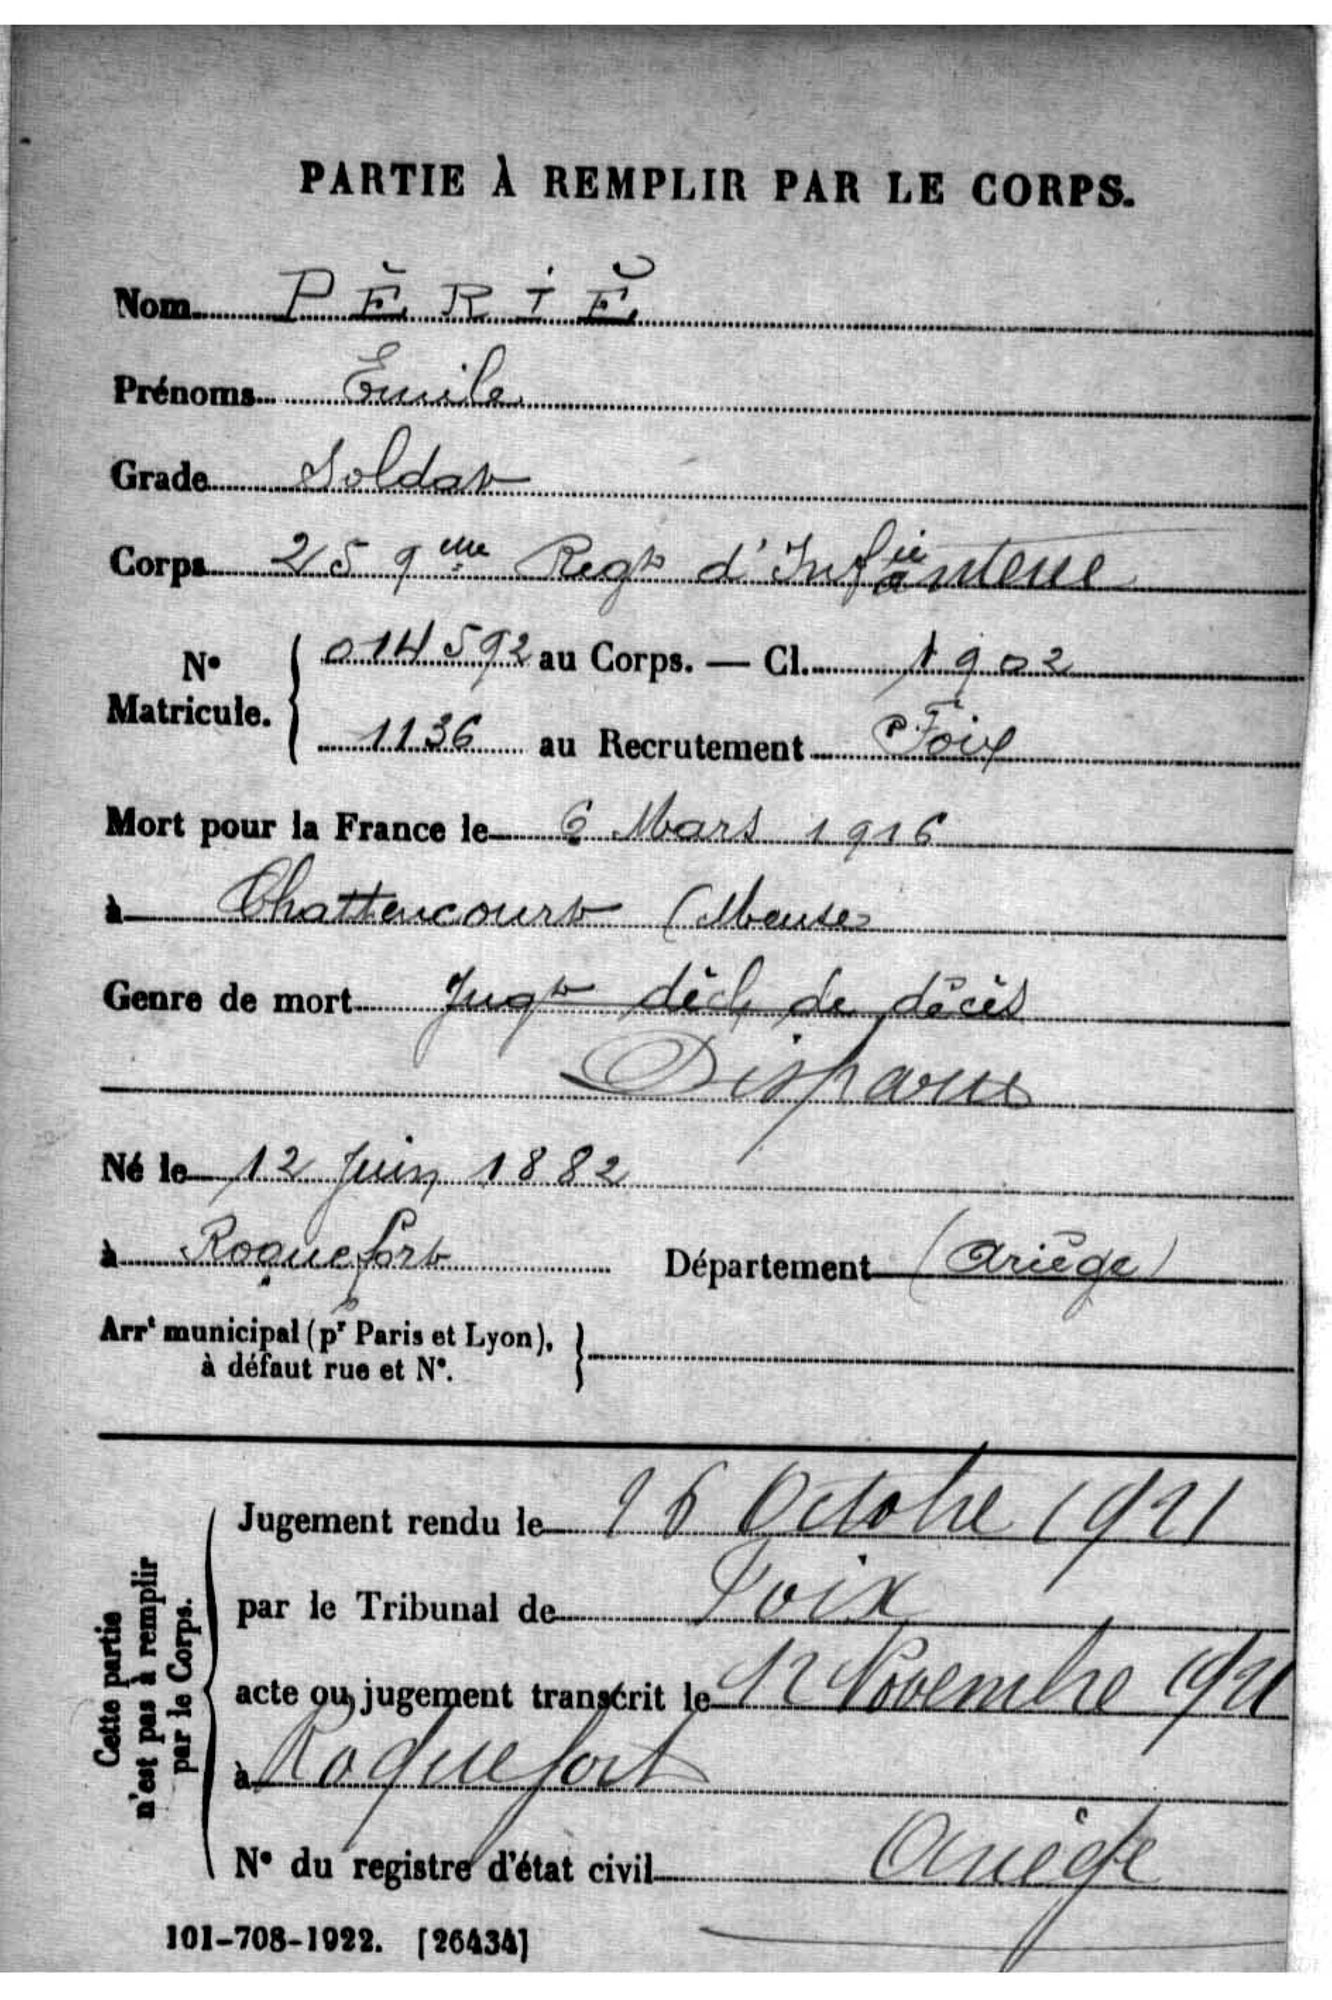 PARTIE À REMPLIR PAR LE CORPS.
Nom PÉRIÉ
Prénoms Emile
Grade Soldat
Corps 259eme Regt d'Infanterie
N° Matricule. 014592 au Corps. — Cl. 1902
1136 au Recrutement Foix
Mort pour la France le 6 Mars 1916
à Chattencourt (Meuse)
Genre de mort Jugt décl de décès
Disparu
Né le 12 Juin 1882
à Roquefort Département (Ariège)
Arrt municipal (pr Paris et Lyon),
à défaut rue et N°.
Cette partie n'est pas à remplir par le Corps.
Jugement rendu le 26 Octobre 1921
par le Tribunal de Foix
acte ou jugement transcrit le 12 Novembre 1921
à Roquefort
N° du registre d'état civil Ariège
101-708-1922. [26434]